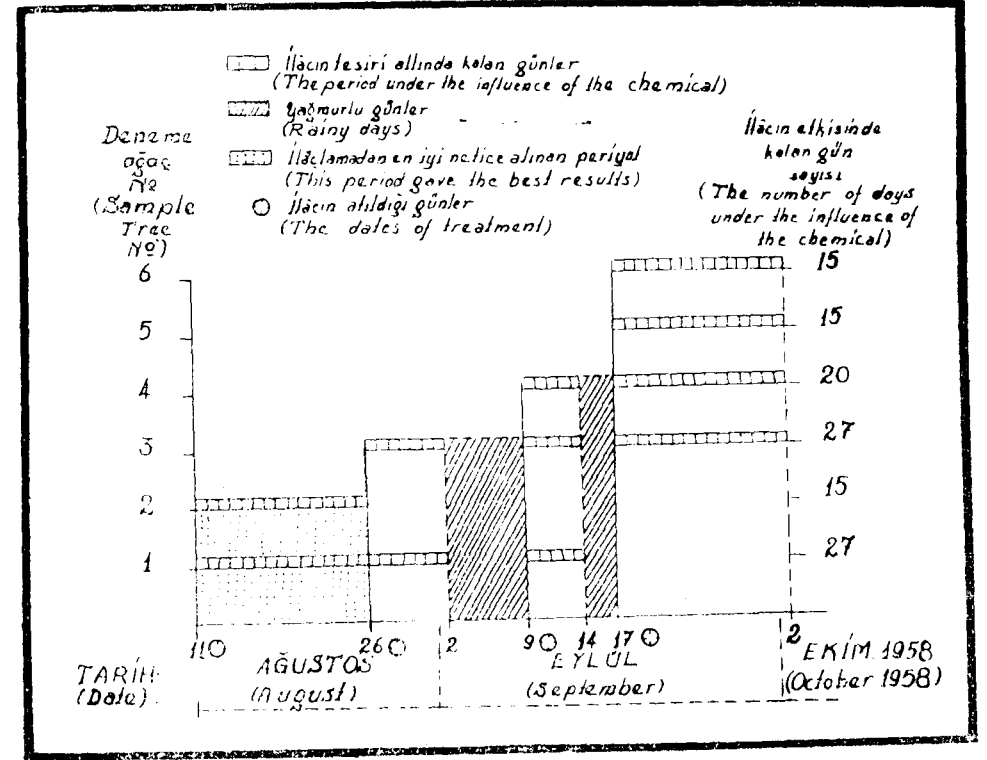 İlâcın tesiri altında kalan günler
(The period under the influence of the chemical)
Yağmurlu günler
(Rainy days)
İlâçlamadan en iyi netice alınan periyal
(This period gave the best results)
İlâcın atıldığı günler
(The dates of treatment)
Deneme
ağaç
No
(Sample
Tree
No)
İlâcın etkisinde
kalan gün
sayısı
(The number of days
under the influence of
the chemical)
6 15
5 15
4 20
3 27
2 15
1 27
11 26 2 9 14 17 2
TARİH AĞUSTOS EYLÜL EKİM 1958
(Date) (August) (September) (October 1958)